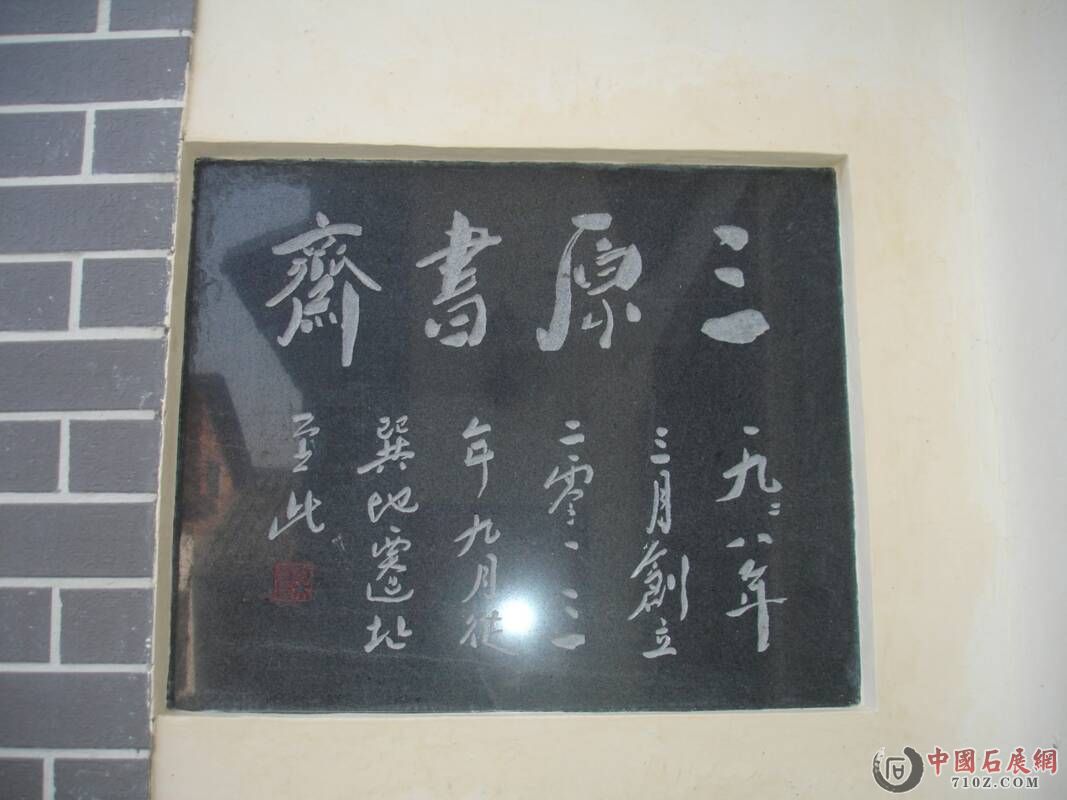 三原書齋
一九二八年
三月創立
二零一三
年九月從
巽地遷址
至此
中國石展網
710Z.COM